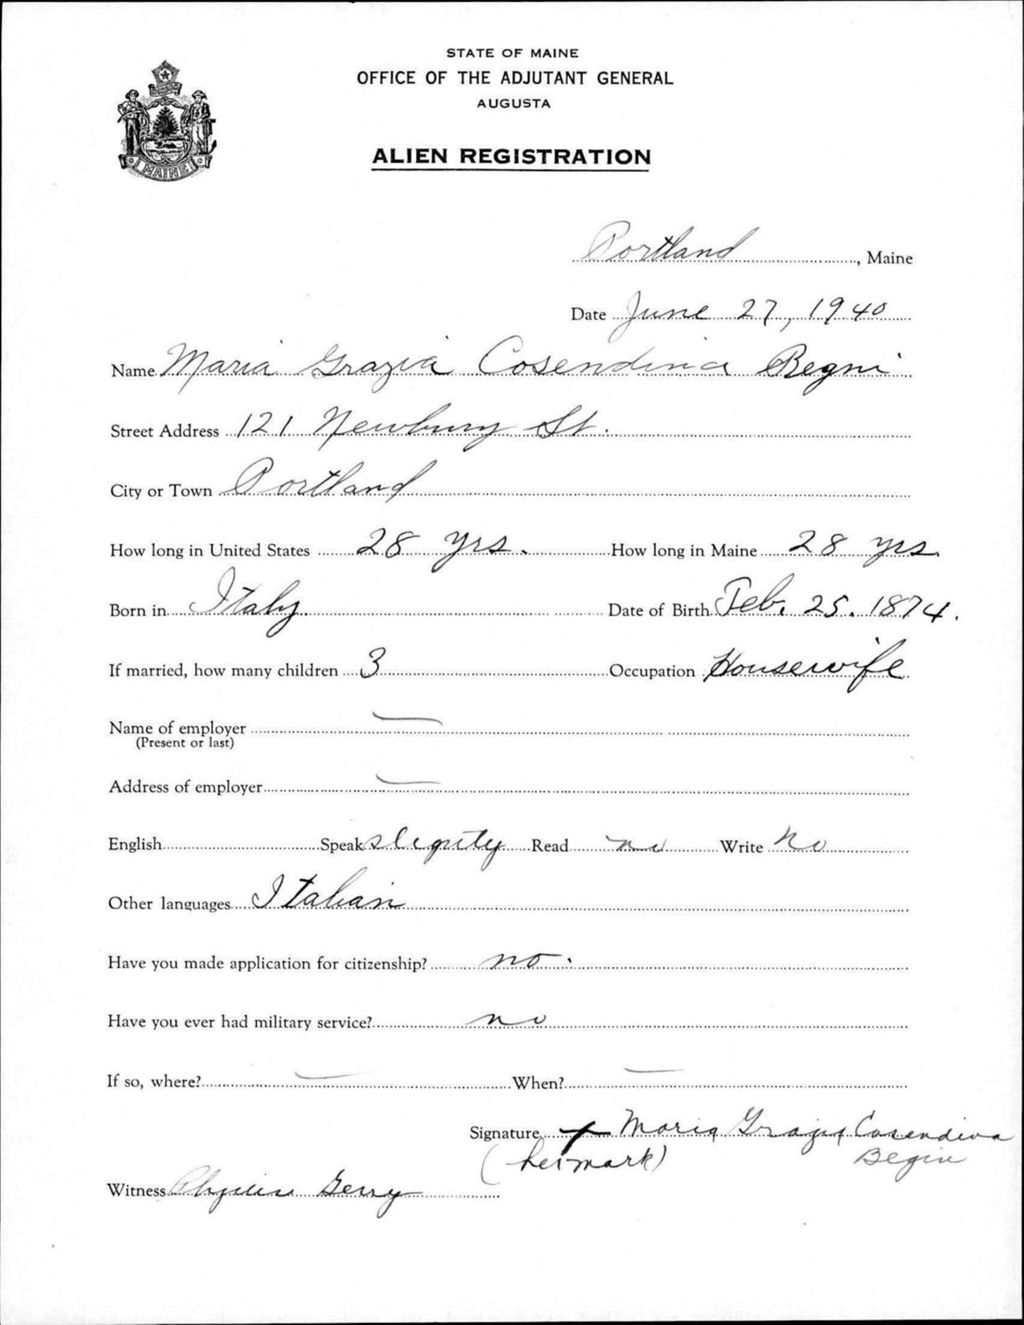 STATE OF MAINE
OFFICE OF THE ADJUTANT GENERAL
AUGUSTA
ALIEN REGISTRATION
MAINE
Portland, Maine
Date June 27, 1940
Name Maria Grazia Cosendina Begni
Street Address 121 Newbury St.
City or Town Portland
How long in United States 28 yrs. How long in Maine 28 yrs
Born in Italy Date of Birth Feb. 25. 1874.
If married, how many children 3 Occupation Housewife
Name of employer —
(Present or last)
Address of employer —
English Speak sligutly Read no Write No
Other languages Italian
Have you made application for citizenship? no.
Have you ever had military service? no
If so, where? — When? —
Signature x Maria Grazia Cosendina
(her mark) Begin
Witness Gerry